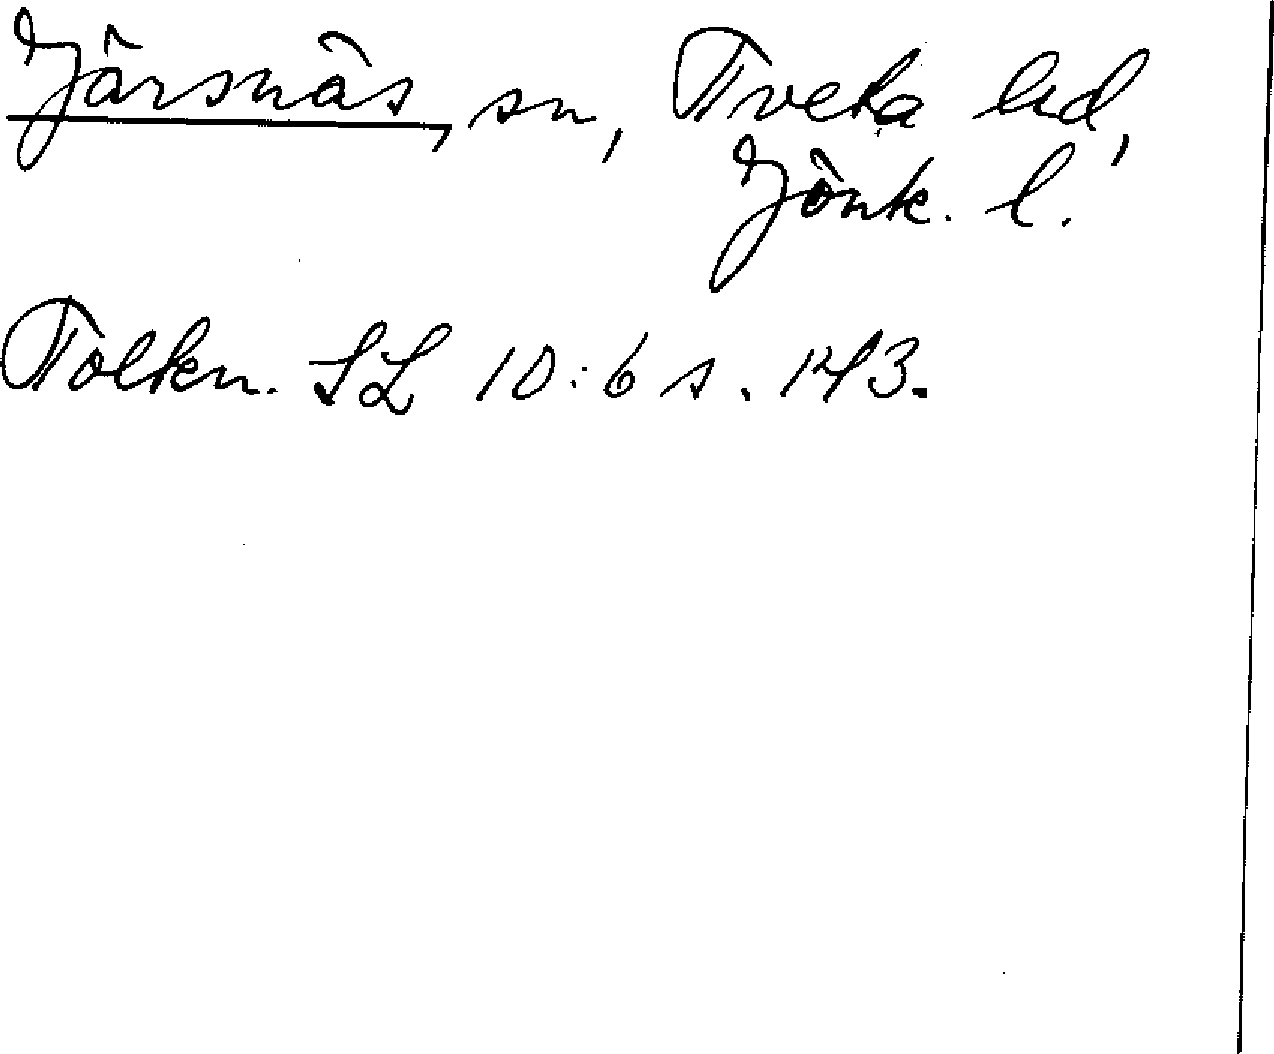 Järsnäs, sn, Tveta hd,
Jönk. l.
Tolkn. SL 10:6 s. 143.